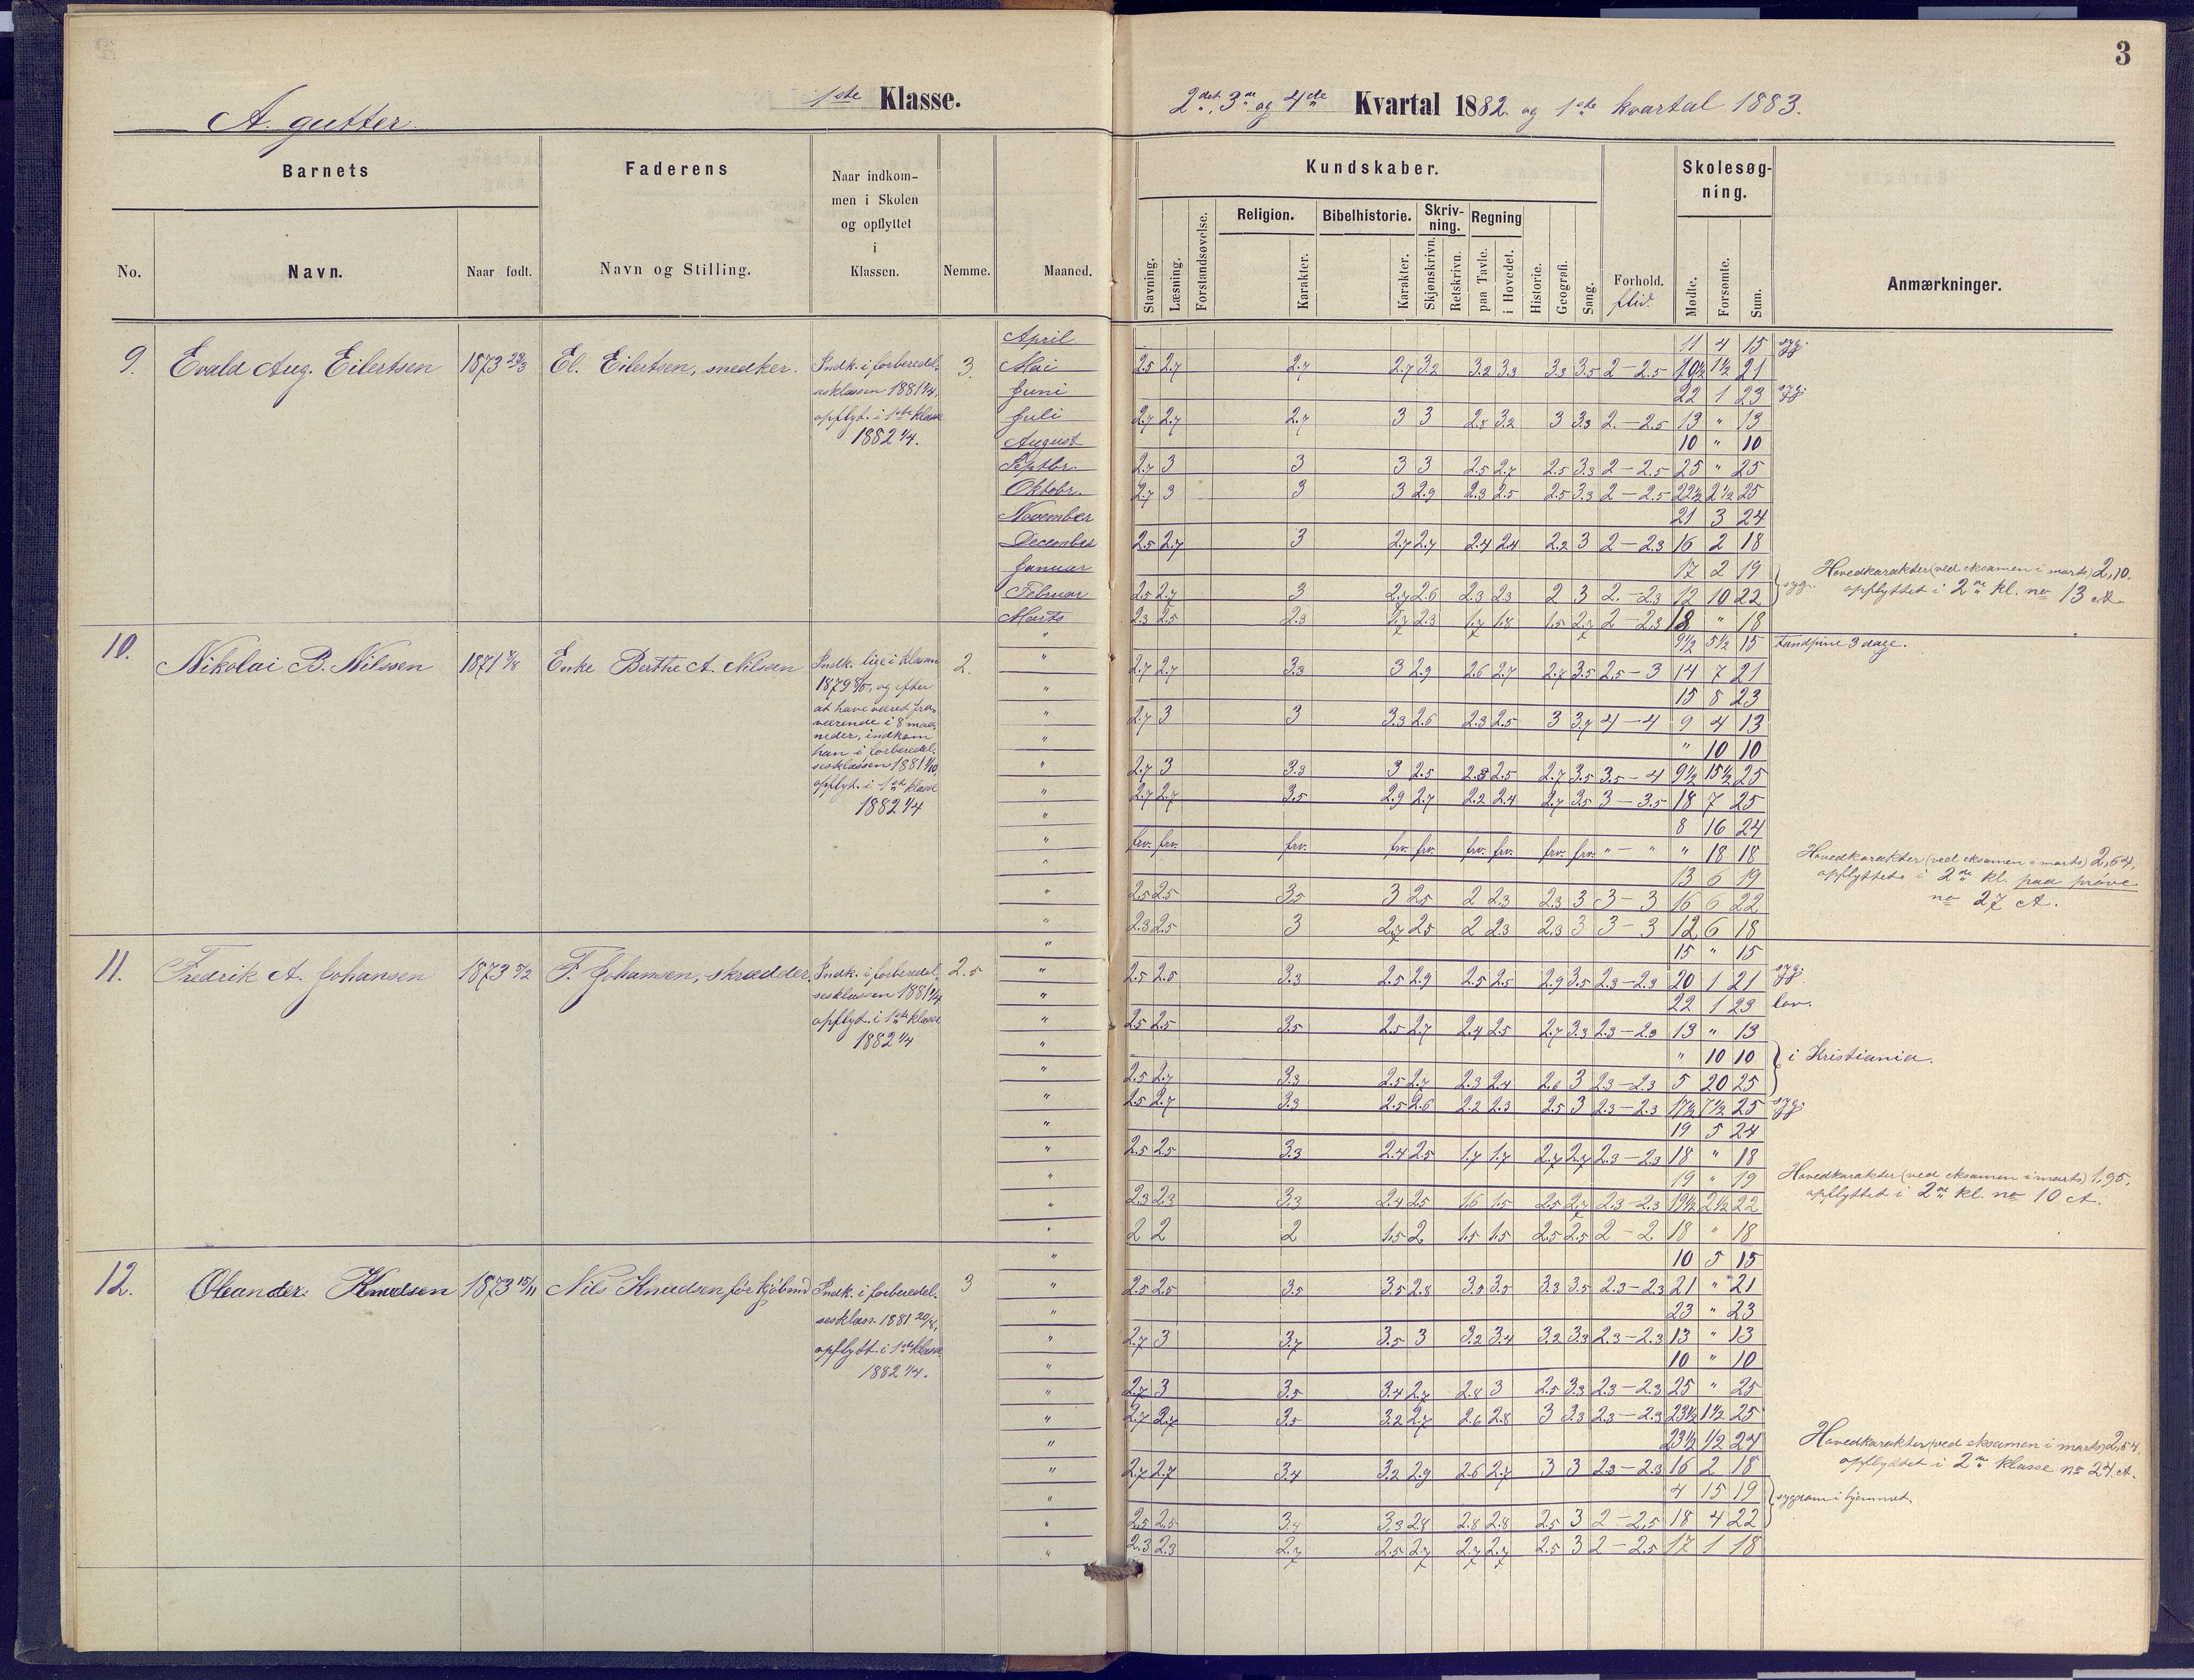 3
A. gutter.
1ste Klasse.
2det, 3de og 4de Kvartal 1882 og 1ste kvartal 1883.
Barnets
Faderens
Naar indkom-
men i Skolen
og opflyttet
i
Klassen.
No.
Navn.
Naar født.
Navn og Stilling.
Nemme.
Maaned.
Kundskaber.
Skolesøg-
ning.
Religion.
Bibelhistorie.
Skriv-
ning.
Regning
Slavning.
Læsning.
Forstandsøvelse.
Karakter.
Karakter.
Skjønskrivn.
Retskrivn.
paa Tavle.
i Hovedet.
Historie.
Geografi.
Sang.
Forhold.
flid.
Mødte.
Forsømte.
Sum.
Anmærkninger.
9. Evald Aug. Eilertsen 1873 23/3 El. Eilertsen, snedker. Indk. i forberedel- 3.
sesklassen 1881 1/4,
opflyt. i 1ste klasse
1882 1/4.
April 11 4 15 syg.
Mai 2.5 2.7 2.7 2.7 3.2 3.2 3.3 3.3 3.5 2 - 2.5 19½ 1½ 21
Juni 22 1 23 syg.
Juli 2.7 2.7 2.7 3 3 2.8 3.2 3 3.3 2. - 2.5 13 " 13
August 10 " 10
Septbr. 2.7 3 3 3 3 2.5 2.7 2.5 3.3 2 - 2.5 25 " 25
Oktobr. 2.7 3 3 3 2.9 2.3 2.5 2.5 3.3 2 - 2.5 22½ 2½ 25
November 21 3 24
December 2.5 2.7 3 2.7 2.7 2.4 2.4 2.2 3 2 - 2.3 16 2 18
Januar 17 2 19
Februar 2.5 2.7 3 2.7 2.6 2.3 2.3 2 3 2. - 2.3 12 10 22 syg.
Marts 2.3 2.5 2.3 1.7 2.3 1.7 1.8 1.5 2.7 2 - 2.3 18 " 18
Hovedkarakter (ved eksamen i marts) 2,10,
opflyttet i 2de kl. no 13 A.
10. Nikolai B. Nilssen 1871 Enke Berthe A. Nilsen Indk. lige i klassen 2.
1879, og efter
at have været fra-
værende i 8 maa-
neder, indkom
han i forberedel-
sesklassen 1881 1/10,
opflyt. i 1ste klasse
1882 1/4
" 9½ 5½ 15 tandpine 3 dage.
" 2.7 2.7 3.3 3 2.9 2.6 2.7 2.7 3.5 2.5 - 3 14 7 21
" 15 8 23
" 2.7 3 3 3.3 2.6 2.3 2.5 3 3.7 4 - 4 9 4 13
" " 10 10
" 2.7 3 3.3 3 2.5 2.3 2.5 2.7 3.5 3.5 - 4 9½ 15½ 25
" 2.7 2.7 3.5 2.9 2.7 2.2 2.4 2.7 3.5 3 - 3.5 18 7 25
" 8 16 24
" frv. frv. frv. frv. frv. frv. frv. frv. frv. " - " " 18 18
" 13 6 19
" 2.5 2.5 3.5 3 2.5 2 2.3 2.3 3 3 - 3 16 6 22
" 2.3 2.5 3 2.7 2.5 2 2.3 2.3 3 3 - 3 12 6 18
Hovedkarakter (ved eksamen i marts) 2,64,
opflyttet i 2de kl. paa prøve
no 27 A.
11. Fredrik A. Johansen 1873 F. Johansen, skrædder. Indk. i forberedel- 2.5
sesklassen 1881 1/4
opflyt. i 1ste klasse
1882 1/4
" 15 " 15
" 2.5 2.5 3.3 2.5 2.9 2.5 2.5 2.9 3.5 2.3 - 2.3 20 1 21 syg.
" 22 1 23 lov.
" 2.5 2.5 3.5 2.5 2.7 2.4 2.5 2.7 3.3 2.3 - 2.3 13 " 13
" " 10 10 i Kristiania.
" 2.5 2.7 3.3 2.5 2.7 2.3 2.4 2.6 3 2.3 - 2.3 5 20 25
" 2.5 2.7 3.3 2.5 2.6 2.2 2.3 2.5 3 2.3 - 2.3 17½ 7½ 25 syg.
" 19 5 24
" 2.5 2.5 3.3 2.4 2.5 1.7 1.7 2.7 2.7 2.3 - 2.3 18 " 18
" 19 " 19
" 2.3 2.3 3.3 2.4 2.5 1.6 1.5 2.5 2.7 2.3 - 2.3 19½ 2½ 22
" 2 2 2 1.5 2 1.5 1.5 2.5 2.5 2 - 2 18 " 18
Hovedkarakter (ved eksamen i marts) 1,95,
opflyttet i 2de kl. no 10 A.
12. Oleander Knudsen 1873 15/11 Nils Knudsen før kjøbmd Indk. i forberedel- 3
sesklass. 1881 20/8,
opflytt. i 1ste klasse
1882 1/4.
" 10 5 15
" 2.5 2.5 3.5 3.5 2.8 3.5 3.5 3.3 3.5 2.3 - 2.3 21 " 21
" 23 " 23
" 2.7 3 3.7 3.5 3 3.2 3.4 3.2 3.3 2.3 - 2.3 13 " 13
" 10 " 10
" 2.7 3 3.5 3.4 2.7 2.8 3 2.5 3.3 2.3 - 2.3 25 " 25
" 2.7 2.7 3.5 3.2 2.7 2.6 2.8 3 3.3 2.3 - 2.3 23½ 1½ 25
" 23½ ½ 24
" 2.7 2.7 3.4 3.2 2.9 2.6 2.7 3 3 2.3 - 2.3 16 2 18
" 4 15 19 sygdom i hjemmet
" 2.5 2.5 3.4 3.3 2.8 2.8 2.8 2.5 3 2 - 2.5 18 4 22
" 2.3 2.3 2.7 2.5 2.7 2.7 2.7 2.5 3 2 - 2.5 17 1 18
Hovedkarakter (ved eksamen i marts) 2,54,
opflyttet i 2de klasse no 24 A.